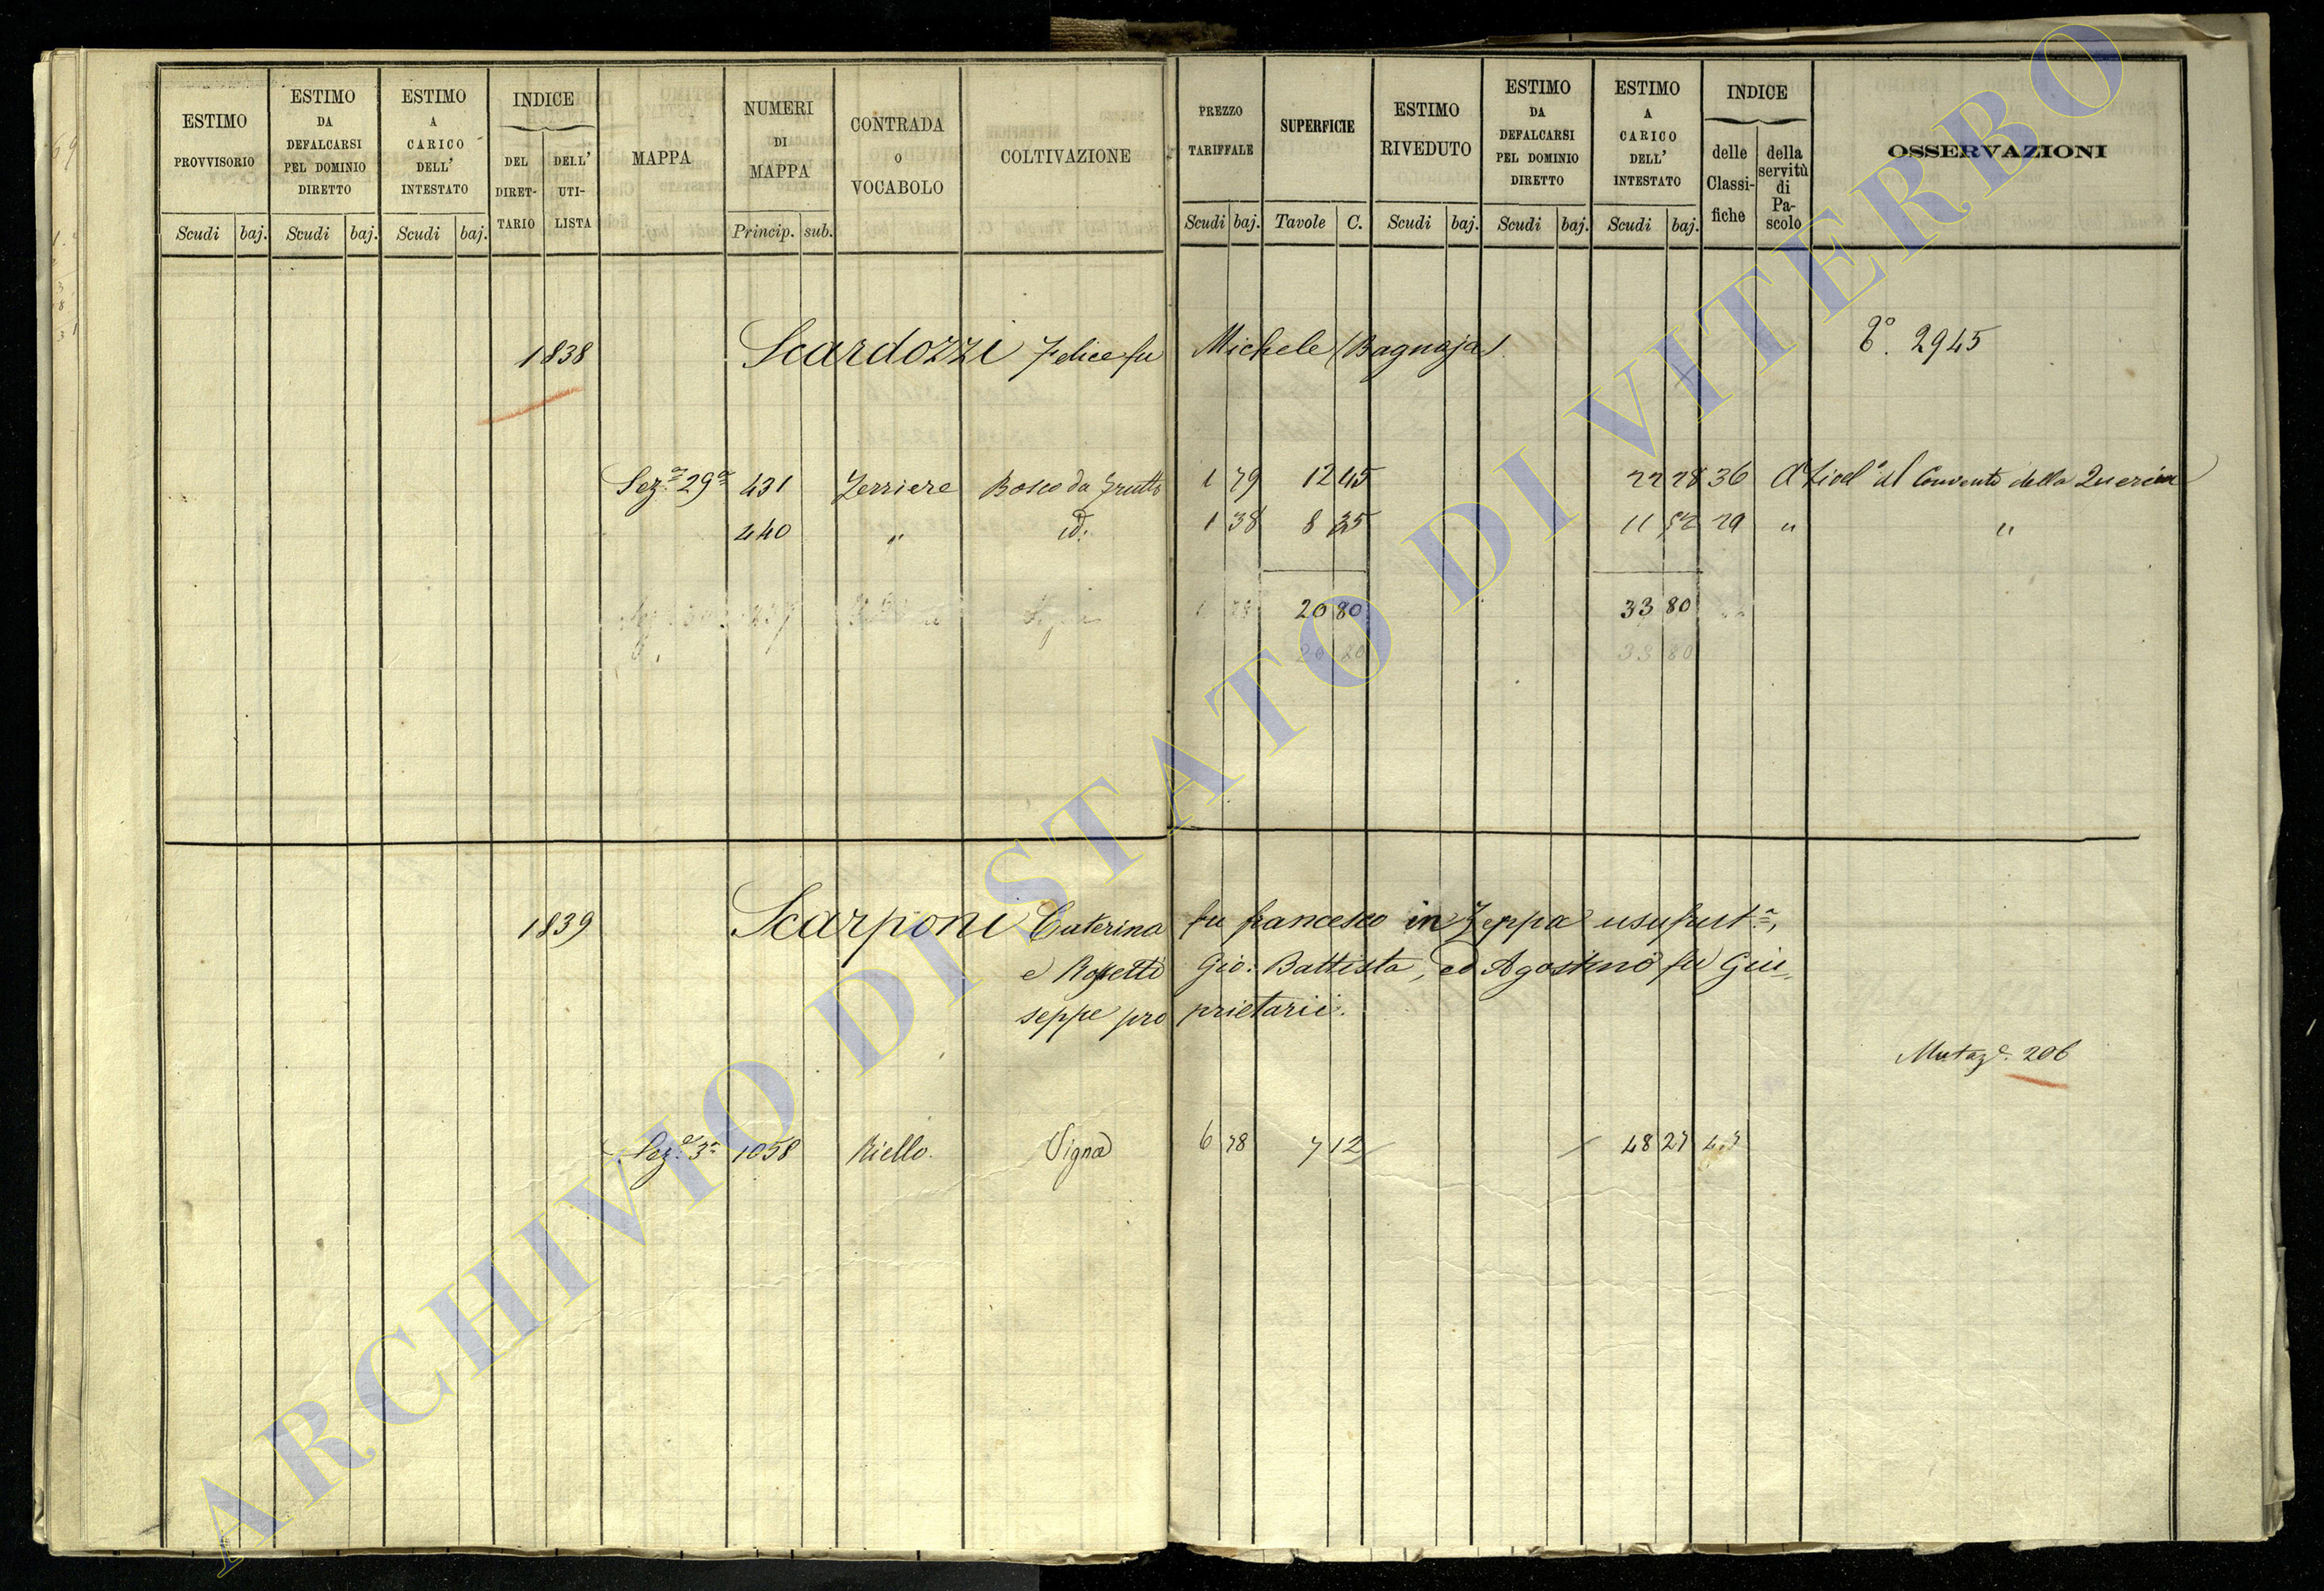 ESTIMO PROVVISORIO
Scudi baj.
ESTIMO DA DEFALCARSI PEL DOMINIO DIRETTO
Scudi baj.
ESTIMO A CARICO DELL' INTESTATO
Scudi baj.
INDICE
DEL DIRET-TARIO
DELL' UTI-LISTA
MAPPA
NUMERI DI MAPPA
Princip. sub.
CONTRADA O VOCABOLO
COLTIVAZIONE
PREZZO TARIFFALE
Scudi baj.
SUPERFICIE
Tavole C.
ESTIMO RIVEDUTO
Scudi baj.
ESTIMO DA DEFALCARSI PEL DOMINIO DIRETTO
Scudi baj.
ESTIMO A CARICO DELL' INTESTATO
Scudi baj.
INDICE
delle Classi-fiche
della servitù di Pa-scolo
OSSERVAZIONI
1838 Scardozzi Felice fu Michele (Bagnaja) 2945
Sez.a 29a 431 Ferriere Bosco da frutto 1 79 12 45 22 28 36 Convento della Quercia
440 " id: 1 38 8 35 11 52 29 " "
20 80 33 80
20 80 33 80
1839 Scarponi Caterina fu francesco in Zeppa usufrut.a,
e Rosetti Gio: Battista, ed Agostino fu Giu,,
seppe pro prietarii.
Mutaz.e 206
Sez.e 3a 1058 Riello. Vigna 6 78 7 12 48 27
ARCHIVIO DI STATO DI VITERBO